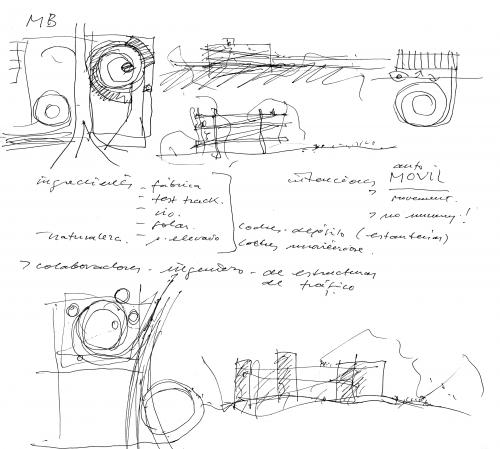 MB
ingredientes - fábrica
- test track.
- río.
- solar.
- naturaleza. - p. elevado
intenciones
auto
MOVIL
movement.
> no museum!
coches - depósito (-estanterías)
coches moviéndose.
> colaboradores - ingeniero - de estructuras
de tráfico